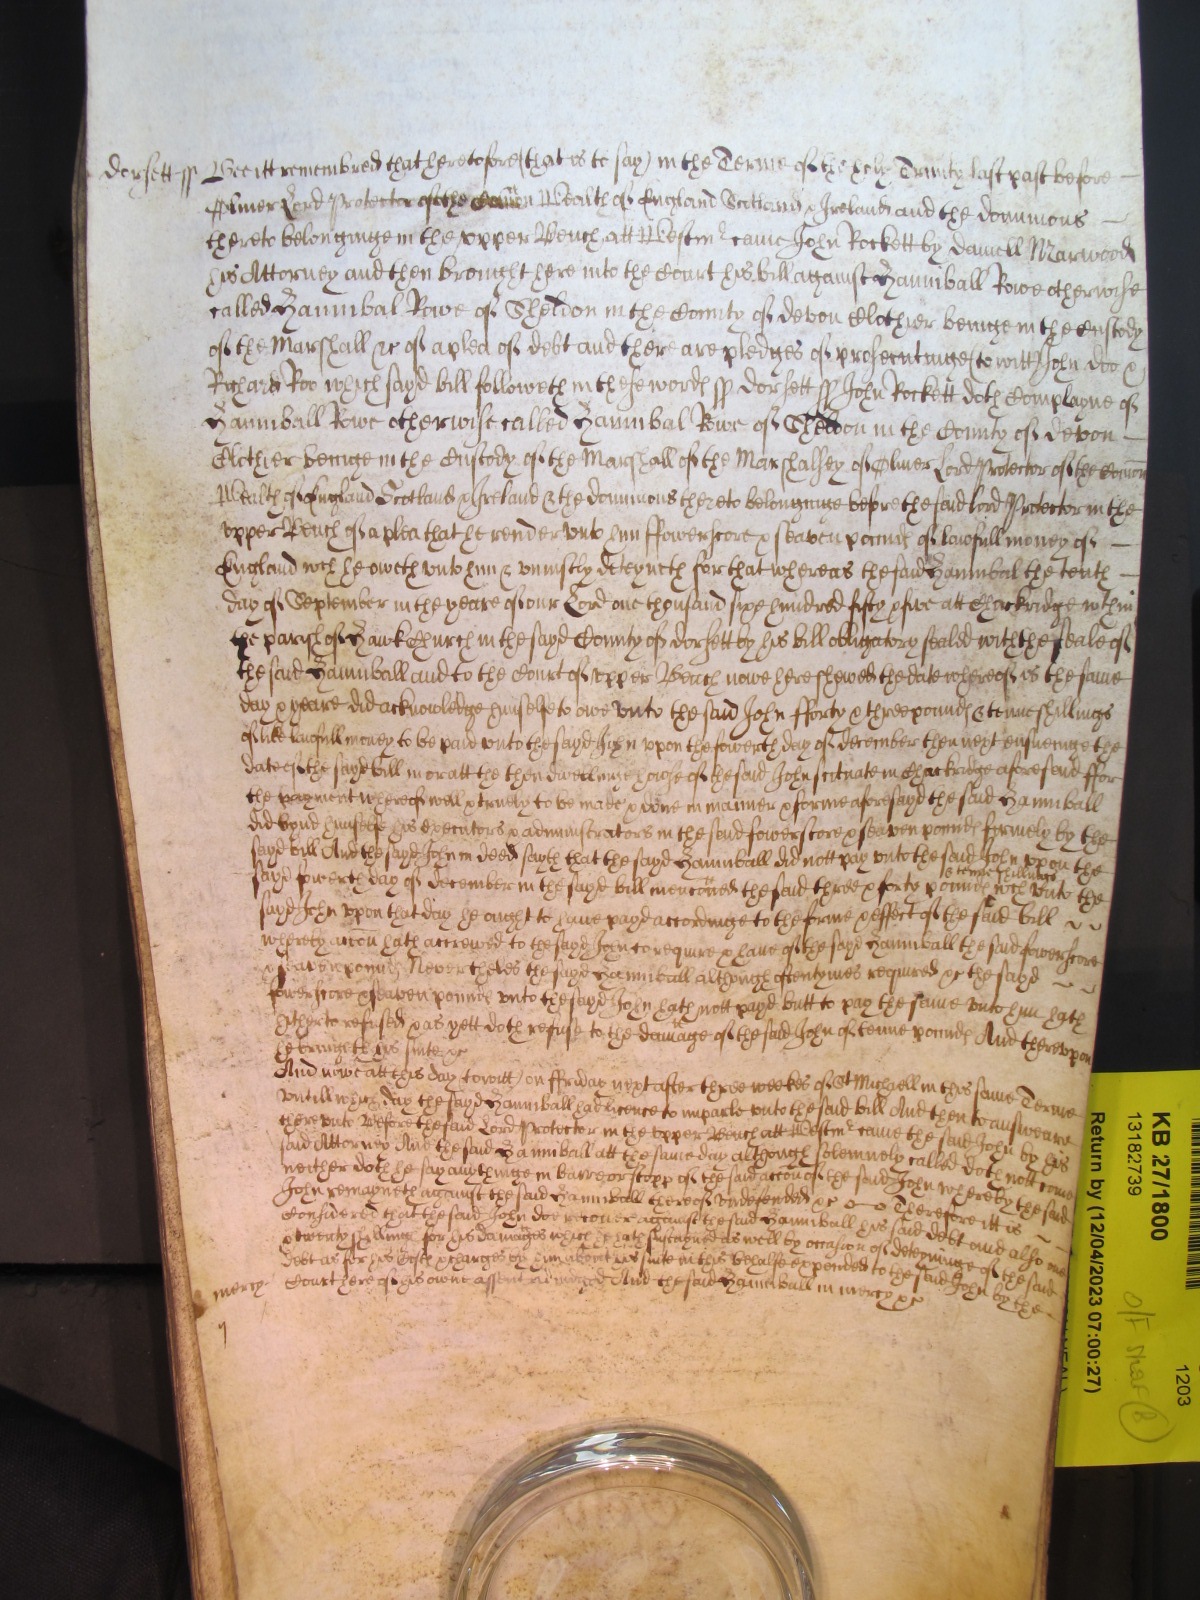 dorsett ss Bee itt remembred that heretofore (that is to say) in the Terme of the holy Trinity last past before
Oliver Lord Protector of the Comon Wealth of England Scotland & Ireland and the dominions
thereto belonginge in the vpper Bench att Westmr came John Rockett by daniell Marwood
his Attorney and then brought here into the Court his bill against Hanniball Rowe otherwise
called Hannibal Rowe of Sheldon in the County of devon Clothier beinge in the Custody
of the Marshall &c of a plea of debt and there are pledges of prosecutinge (to witt) John doo &
Richard Roo which sayd bill followeth in these words ss dorsett ss John Rockett doth Complayne of
Hanniball Rowe otherwise called Hannibal Rowe of Sheldon in the County of devon
Clothier beinge in the Custody of the Marshall of the Marshalsey of Oliver Lord Protector of the Comon
Wealth of England Scotland & Ireland & the dominions thereto belonginge before the said Lord Protector in the
vpper Bench of a plea that he render vnto him ffowerscore & seaven pounds of lawfull money of
England wch he oweth vnto him & vniustly deteyneth for that whereas the said Hannibal the tenth
day of September in the yeare of our Lord one thousand sixe hundred fifty & five att Chackridge within
the parish of Hawkchurch in the sayd County of dorsett by his bill obligatory sealed with the seale of
the said Hanniball and to the Court of vpper Bench nowe here shewed the date whereof is the same
day & yeare did acknowledge himselfe to owe vnto the said John fforty & three pounds & tenne shillings
of like lawfull money to be paid vnto the sayd John vpon the fowerth day of december then next ensueinge the
date of the sayd bill in or att the then dwellinge house of the said John scituate in Chackridge aforesaid ffor
the payment whereof well & truely to be made & done in manner & forme aforesayd the said Hanniball
did bynd himselfe his executors & administrators in the said fowerscore & seaven pounds firmely by the
sayd bill And the sayd John in deed sayth that the sayd Hanniball did nott pay vnto the said John vpon the
& tenne shillings
sayd fowerth day of december in the sayd bill menconed the said three & forty pounds wch vnto the
sayd John vpon that day he ought to have payd accordinge to the forme & effect of the said bill
whereby accon hath accrewed to the sayd John to require & have of the sayd Hanniball the said fowerscore
& seaven pounds Neverthelesse the sayd Hanniball although oftentymes required &c the sayd
fowerscore & seaven pounds vnto the sayd John hath nott payd butt to pay the same vnto him hath
hitherto refused & as yett doth refuse to the damage of the said John of tenne pounds And therevpon
he bringeth his suite &c
And nowe att this day (to witt) on ffriday next after three weekes of St Michaell in this same Terme
vntill which day the sayd Hanniball had licence to imparle vnto the said bill And then to answeare
therevnto Before the said Lord Protector in the vpper Bench att Westmr came the said John by his
said Attorney And the said Hanniball att the same day although solemnely called doth nott come
neither doth he say any thinge in barre or stopp of the said accon of the said John whereby the said
John remayneth against the said Hanniball thereof vndefended &c Therefore itt is
Considered that the said John doe recover against the said Hanniball his said debt and alsoe one
& twenty shillings for his damages which he hath susteyned as well by occasion of deteyninge of the said
debt as for his Costs & charges by him about his suite in this behalfe expended to the said John by the
mercy Court here of his owne assent adiudged And the said Hanniball in mercy &c
KB 27/1800
13182739
Return by (12/04/2023 07:00:27)
1203